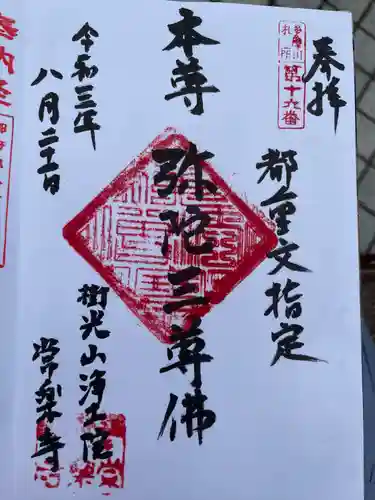 奉拝
多摩川
札所
第十六番
都重文指定
本尊
弥陀三尊佛
令和三年
八月二十一日
樹光山浄土院
常楽寺